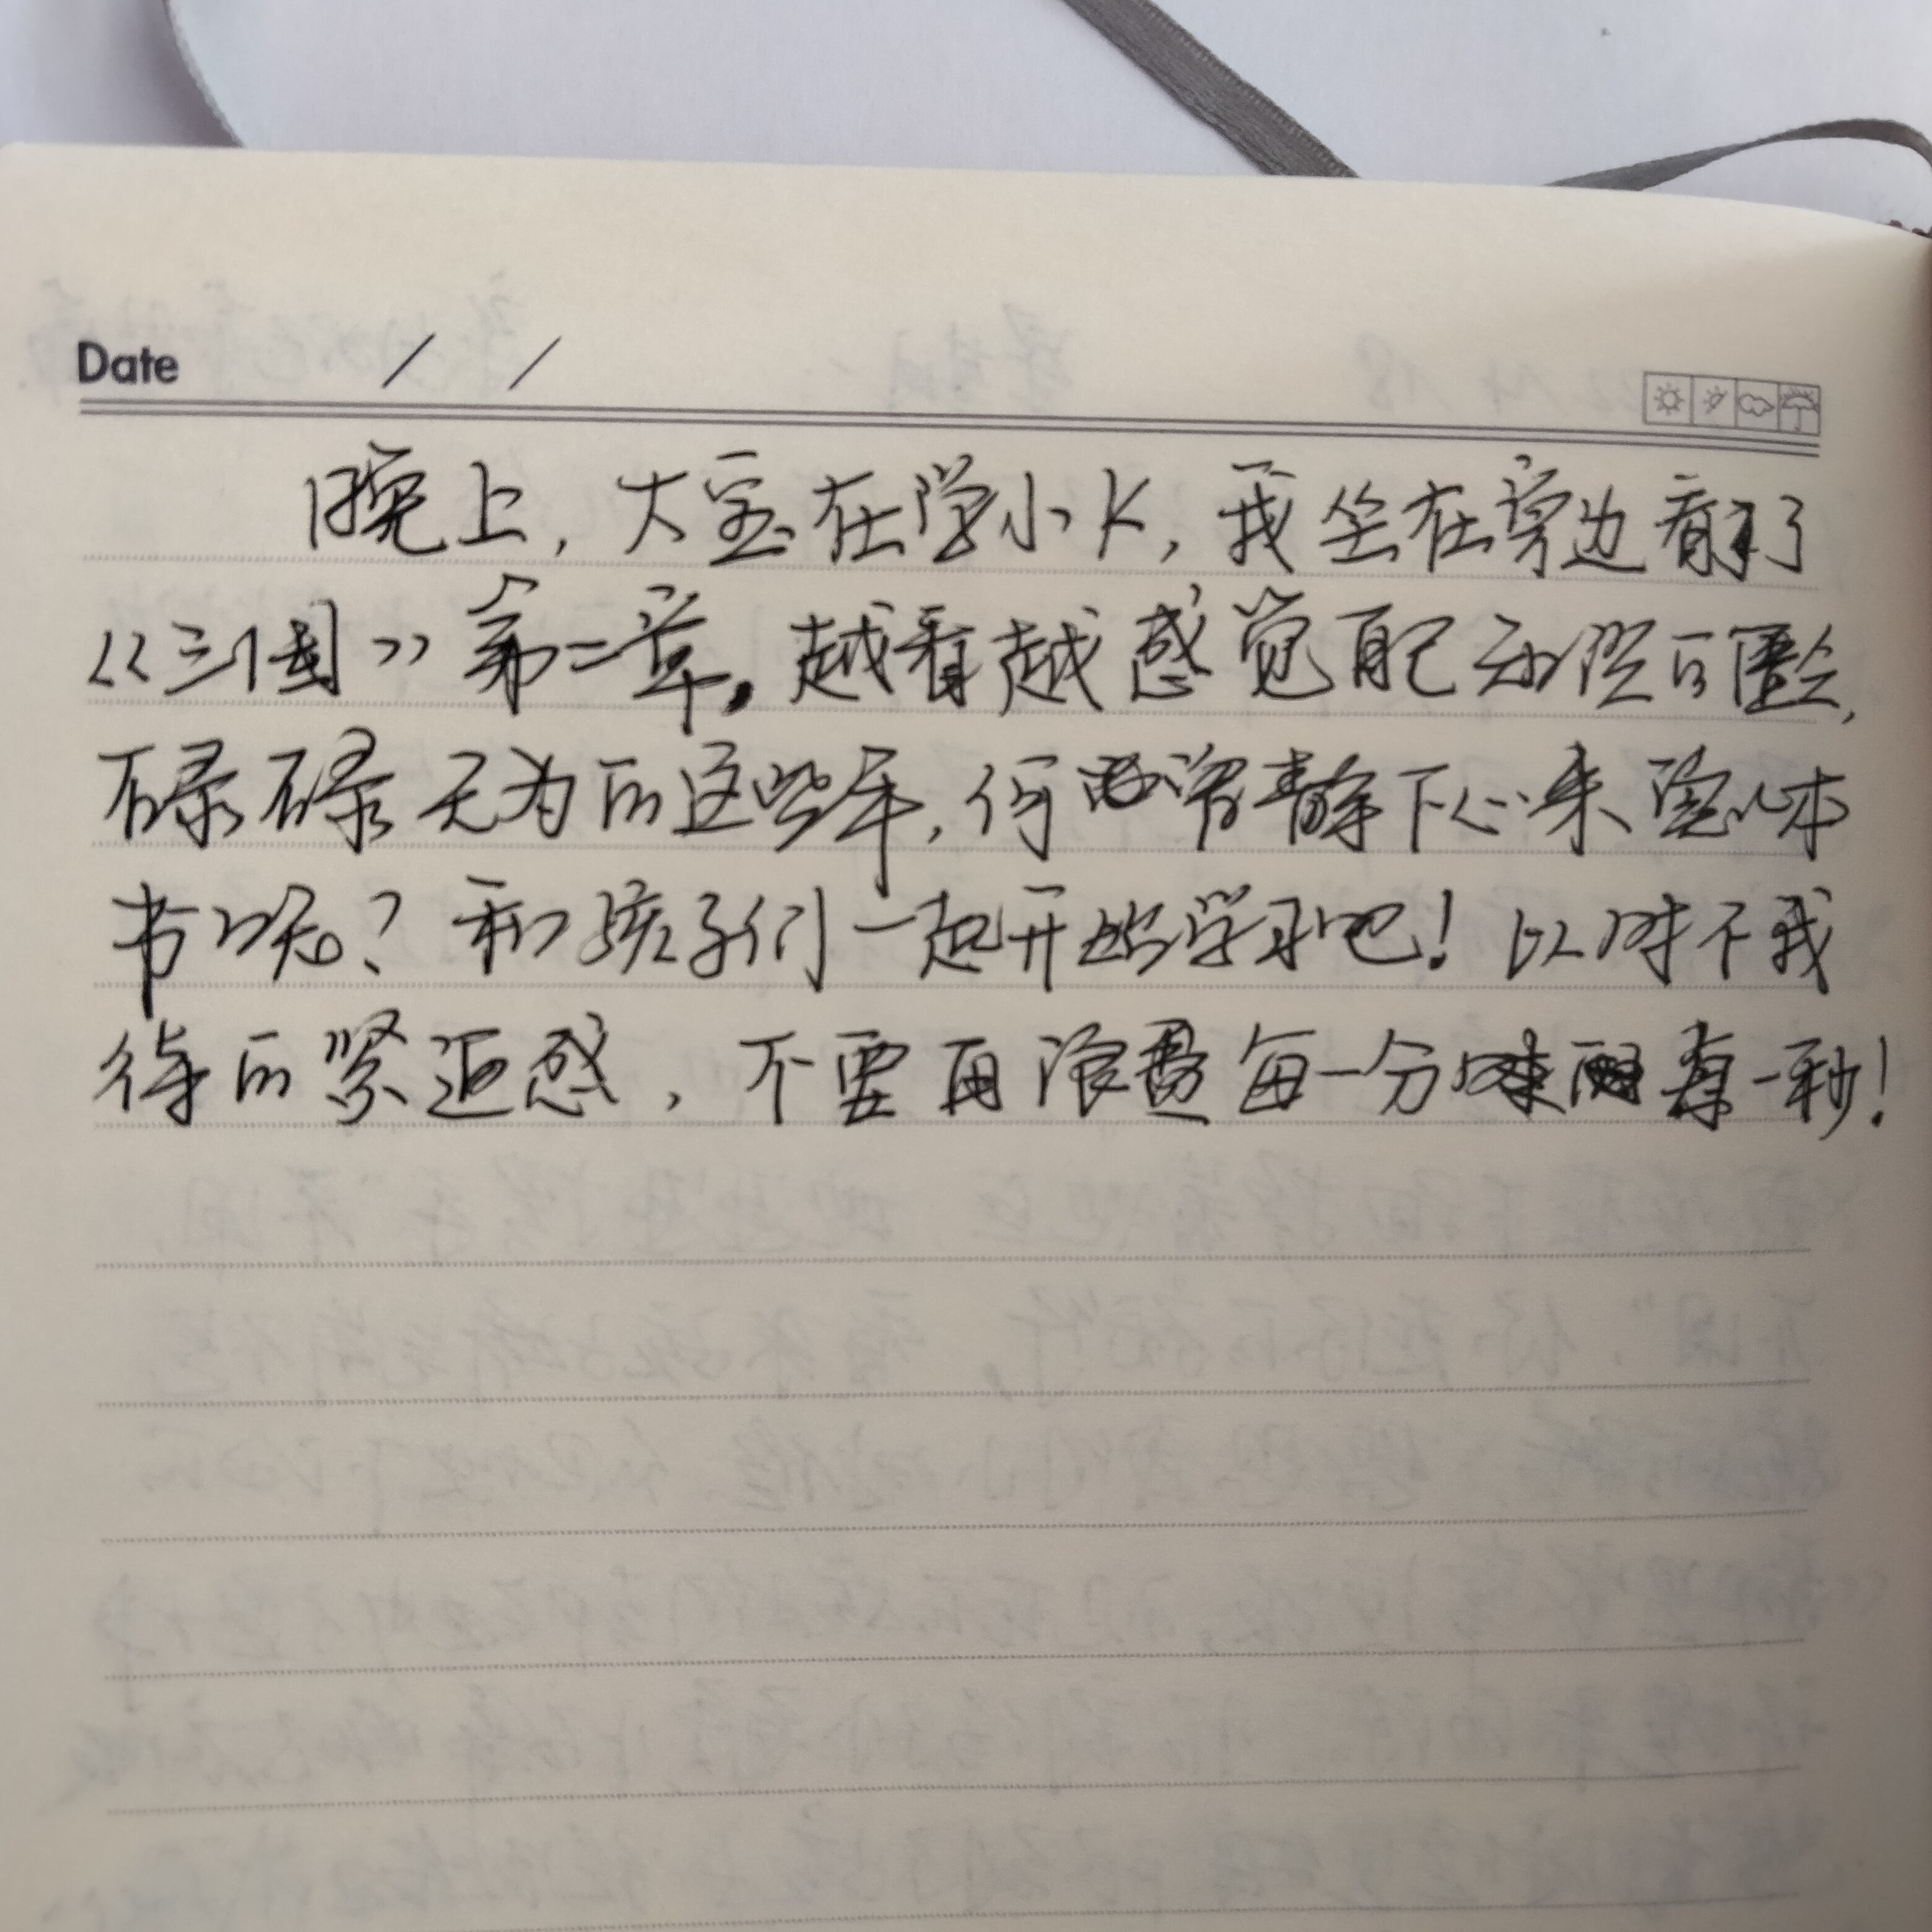 Date / /
晚上，大宝在学小K，我坐在旁边看了
《三国》第一章。越看越感觉自己知识的匮乏，
碌碌无为的这些年，何曾静下心来读几本
书呢？和孩子们一起开始学习吧！以时不我
待的紧迫感，不要再浪费每一分每一秒！